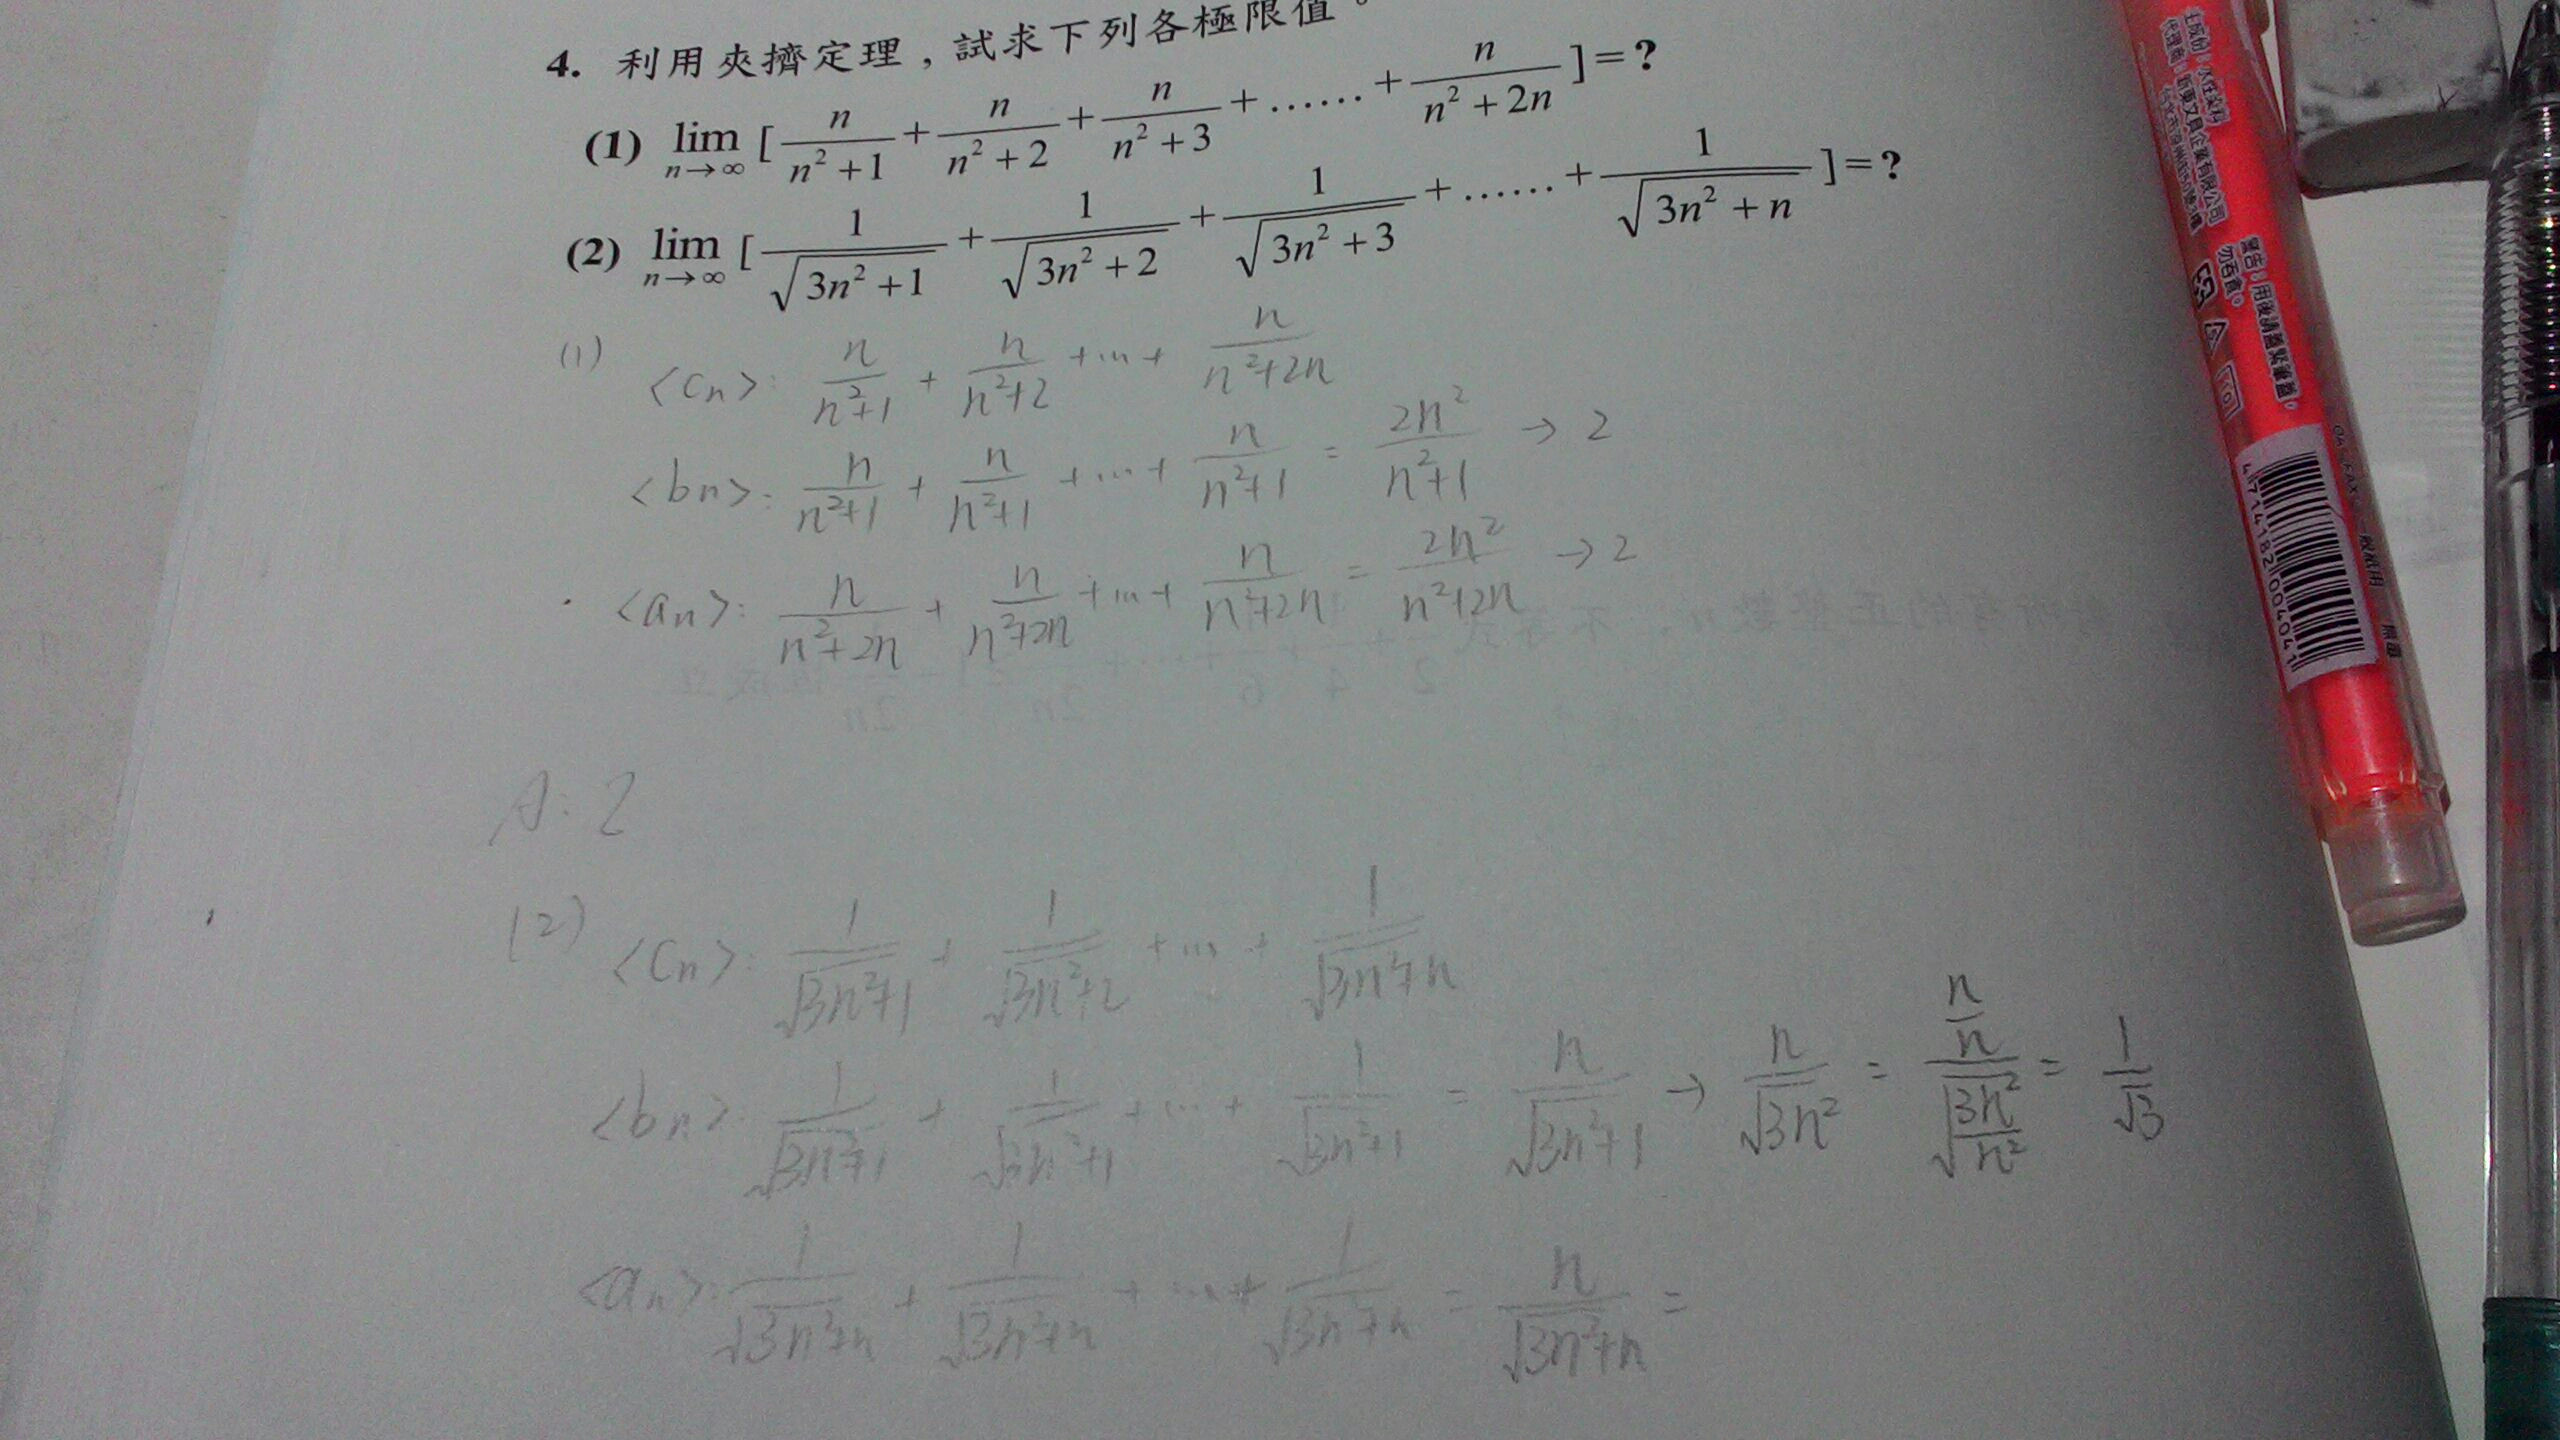 4. 利用夾擠定理，試求下列各極限值。
(1) lim n→∞ [ n/(n²+1) + n/(n²+2) + n/(n²+3) + …… + n/(n²+2n) ] = ?
(2) lim n→∞ [ 1/√(3n²+1) + 1/√(3n²+2) + 1/√(3n²+3) + …… + 1/√(3n²+n) ] = ?
(1) <Cn>: n/(n²+1) + n/(n²+2) + … + n/(n²+2n)
<bn>: n/(n²+1) + n/(n²+1) + … + n/(n²+1) = 2n²/(n²+1) → 2
<an>: n/(n²+2n) + n/(n²+2n) + … + n/(n²+2n) = 2n²/(n²+2n) → 2
A: 2
(2) <Cn>: 1/√(3n²+1) + 1/√(3n²+2) + … + 1/√(3n²+n)
<bn>: 1/√(3n²+1) + 1/√(3n²+1) + … + 1/√(3n²+1) = n/√(3n²+1) → n/√3n² = (n/n)/√(3n²/n²) = 1/√3
<an>: 1/√(3n²+n) + 1/√(3n²+n) + … + 1/√(3n²+n) = n/√(3n²+n) =
警告：用後請蓋緊筆蓋，
勿吞食。
4 714182 004041